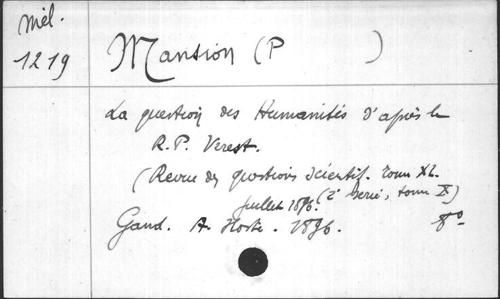 Mél.
1219
Mansion (P        )
La question des Humanités d'après le
R. P. Verest.
(Revue des questions scientif. Tome XL.
Juillet 1896. (2e Serie, tome X)
Gand. A. Hoste. 1896. 8o